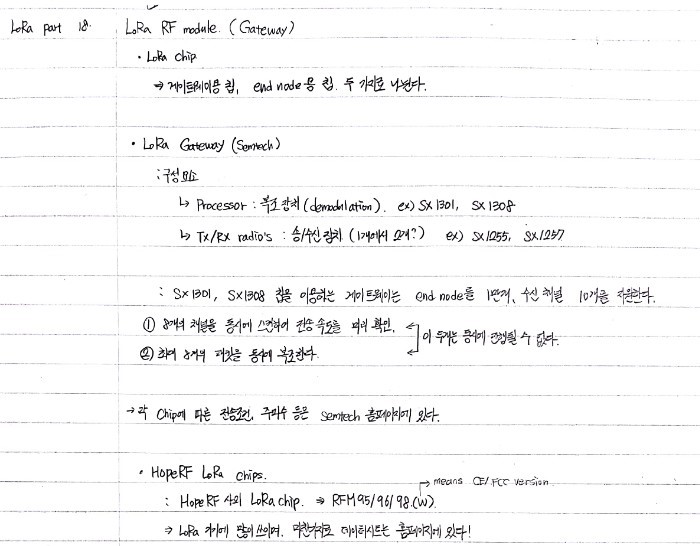 LoRa part 18. LoRa RF module. (Gateway)
• LoRa chip
→ 게이트웨이용 칩, end node용 칩. 두 가지로 나뉜다.
• LoRa Gateway (Semtech)
: 구성 요소
↳ Processor : 복조 장치 (demodulation). ex) SX1301, SX1308
↳ Tx/Rx radio's : 송/수신 장치 (1개에서 2개?) ex) SX1255, SX1257
: SX1301, SX1308 칩을 이용하는 게이트웨이는 end node를 1만개, 수신 채널 10개를 지원한다.
① 8개의 채널을 동시에 스캔하여 전송 속도를 미리 확인.
이 두개는 동시에 진행될 수 없다.
② 최대 8개의 패킷을 동시에 복조한다.
→ 각 Chip에 따른 전송조건, 주파수 등은 semtech 홈페이지에 있다.
• HopeRF LoRa chips.
→ means CE/FCC version
: HopeRF 사의 LoRa chip. ⇒ RFM95/96/98.(W).
→ LoRa 기기에 많이 쓰이며, 마찬가지로 데이터시트는 홈페이지에 있다!